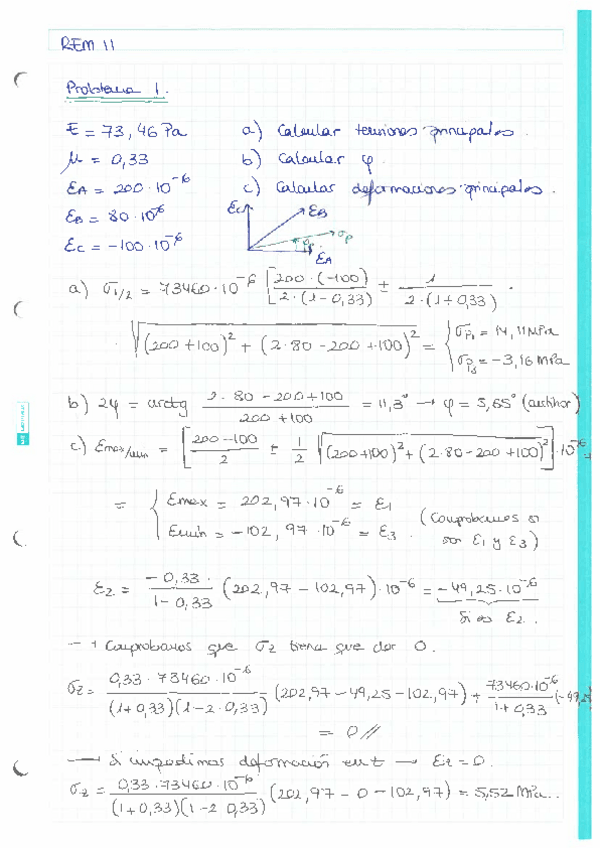 REM 11
Problema 1.
E = 73,46 Pa a) Calcular tensiones principales.
μ = 0,33 b) Calcular φ.
εA = 200·10^-6 c) Calcular deformaciones principales.
εB = 80·10^-6 εC εB σp
εC = -100·10^-6 φ εA
a) σ1/2 = 73460·10^-6 [ (200·(-100)) / (2·(1-0,33)) ± 1 / (2·(1+0,33)) ·
√((200+100)^2 + (2·80-200+100)^2) = { σp1 = 14,11 MPa
σp3 = -3,16 MPa
b) 2φ = arctg (2·80-200+100) / (200+100) = 11,3° → φ = 5,65° (antihor)
c) εmax/min = [ (200-100) / 2 ± 1/2 √((200+100)^2 + (2·80-200+100)^2) ]·10^-6 =
= { εmax = 202,97·10^-6 = ε1
εmin = -102,97·10^-6 = ε3. (Comprobamos si
son ε1 y ε3)
ε2 = (-0,33·) / (1-0,33) (202,97-102,97)·10^-6 = -49,25·10^-6
Si es ε2..
→ Comprobamos que σz tiene que dar 0.
σz = (0,33·73460·10^-6) / ((1+0,33)(1-2·0,33)) (202,97-49,25-102,97) + (73460·10^-6) / (1+0,33) (-49,25
= 0 //
→ Si impedimos deformación en t → εz = 0.
σz = (0,33·73460·10^-6) / ((1+0,33)(1-2·0,33)) (202,97-0-102,97) = 5,52 MPa..